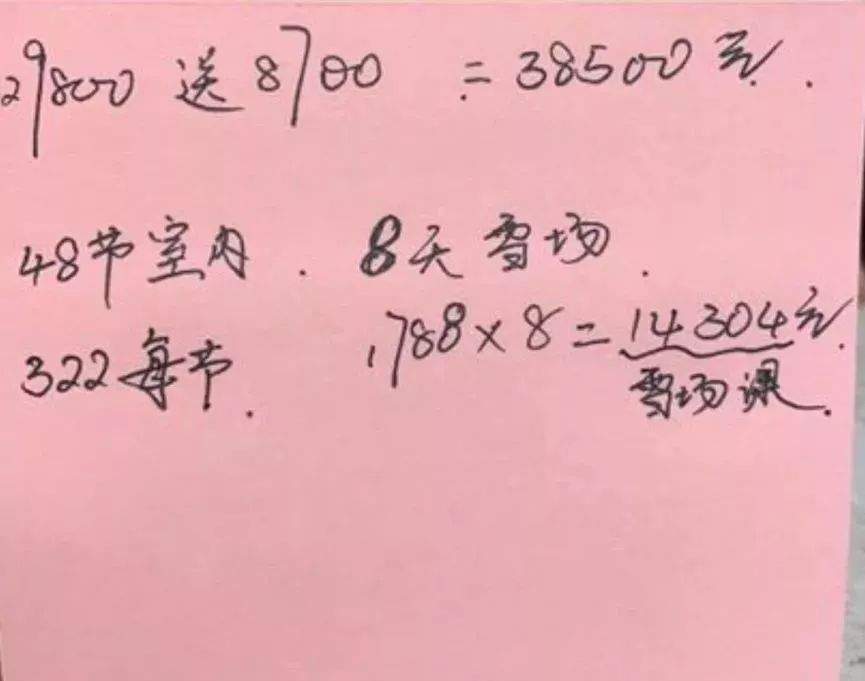 29800 送 8700 = 38500 元.
48节室内. 8天雪场.
322每节. 1788×8=14304元.
雪场课.